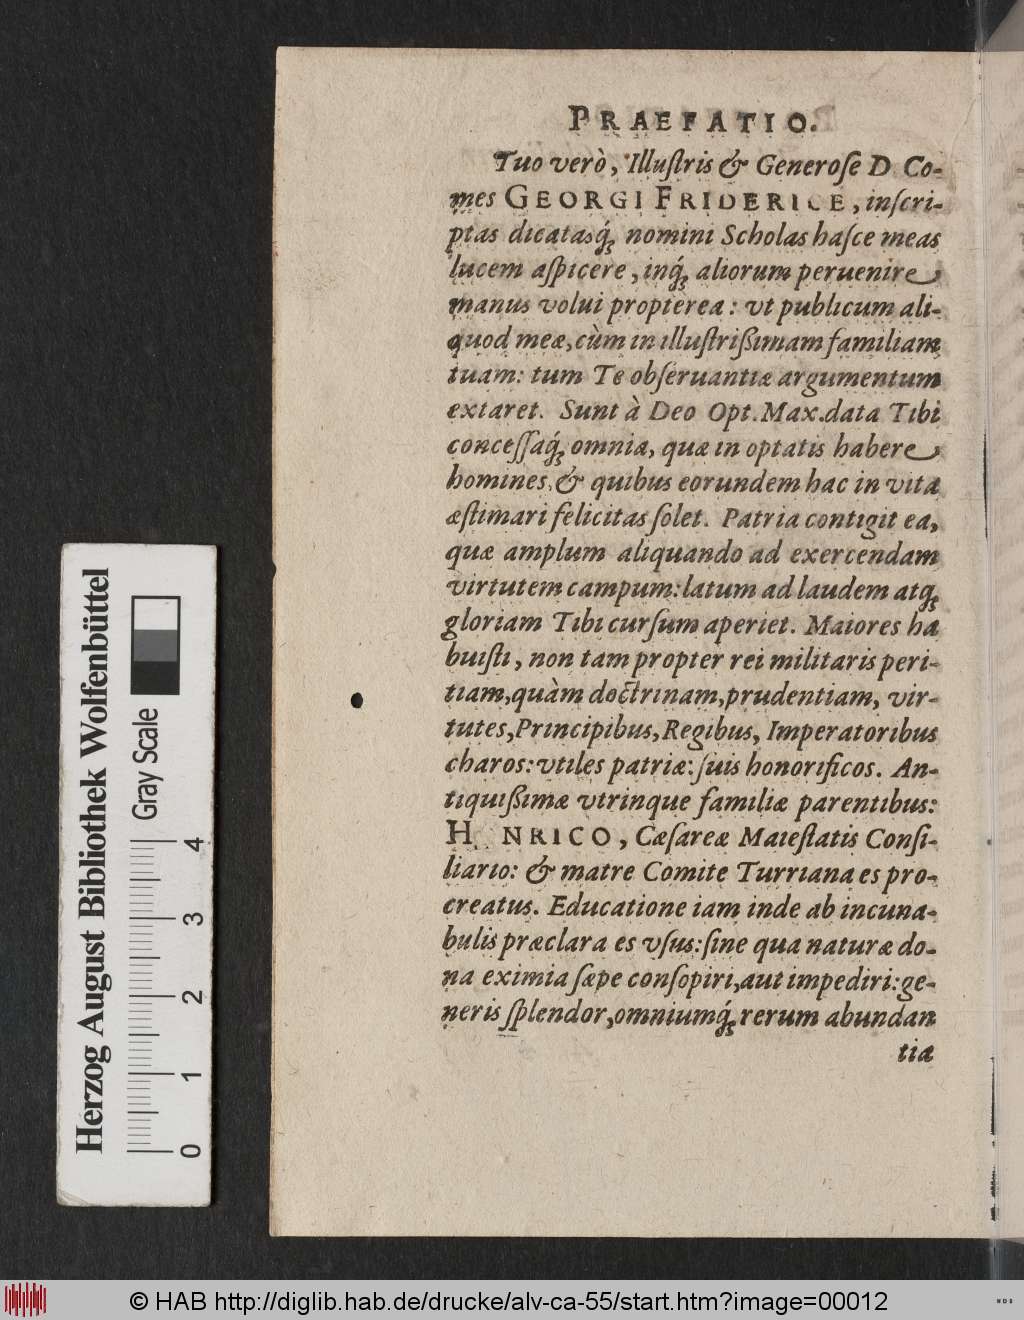 PRAEFATIO.
Tuo verò, Illuſtris & Generoſe D. Co-
mes GEORGI FRIDERICE, inſcri-
ptas dicatasq́ꝫ nomini Scholas haſce meas
lucem aſpicere, inq́ꝫ aliorum peruenire
manus volui propterea: vt publicum ali-
quod meæ, cùm in illuſtriſsimam familiam
tuam: tum Te obſeruantiæ argumentum
extaret. Sunt à Deo Opt. Max. data Tibi
conceſſaq́ꝫ omnia, quæ in optatis habere
homines, & quibus eorundem hac in vita
æſtimari felicitas ſolet. Patria contigit ea,
quæ amplum aliquando ad exercendam
virtutem campum: latum ad laudem atqꝫ
gloriam Tibi curſum aperiet. Maiores ha
buiſti, non tam propter rei militaris peri-
tiam, quàm doctrinam, prudentiam, vir-
tutes, Principibus, Regibus, Imperatoribus
charos: vtiles patriæ: ſuis honorificos. An-
tiquiſsimæ vtrinque familiæ parentibus:
H NRICO, Cæſareæ Maieſtatis Conſi-
liario: & matre Comite Turriana es pro-
creatus. Educatione iam inde ab incuna-
bulis præclara es vſus: ſine qua naturæ do-
na eximia ſæpe conſopiri, aut impediri: ge-
neris ſplendor, omniumq́ꝫ rerum abundan
tiæ
Herzog August Bibliothek Wolfenbüttel
Gray Scale
0 1 2 3 4
© HAB http://diglib.hab.de/drucke/alv-ca-55/start.htm?image=00012